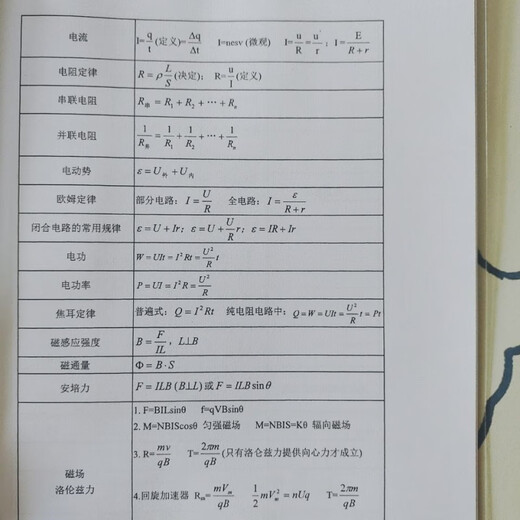 电流 I=q/t(定义)=Δq/Δt I=nesv (微观) I=u/R=u'/r; I=E/(R+r)
电阻定律 R=ρL/S(决定); R=u/I(定义)
串联电阻 R串=R₁+R₂+⋯+Rₙ
并联电阻 1/R并=1/R₁+1/R₂+⋯+1/Rₙ
电动势 ε=U外+U内
欧姆定律 部分电路: I=U/R 全电路: I=ε/(R+r)
闭合电路的常用规律 ε=U+Ir; ε=U+(U/R)r; ε=IR+Ir
电功 W=UIt=I²Rt=(U²/R)t
电功率 P=UI=I²R=U²/R
焦耳定律 普遍式: Q=I²Rt 纯电阻电路中: Q=W=UIt=(U²/R)t=Pt
磁感应强度 B=F/IL, L⊥B
磁通量 Φ=B·S
安培力 F=ILB (B⊥L) 或 F=ILB sinθ
磁场
洛伦兹力
1. F=BILsinθ f=qVBsinθ
2. M=NBIScosθ 匀强磁场 M=NBIS=Kθ 辐向磁场
3. R=mv/qB T=2πm/qB (只有洛仑兹力提供向心力才成立)
4.回旋加速器 Rm=mVm/qB 1/2mVm²=nUq T=2πm/qB